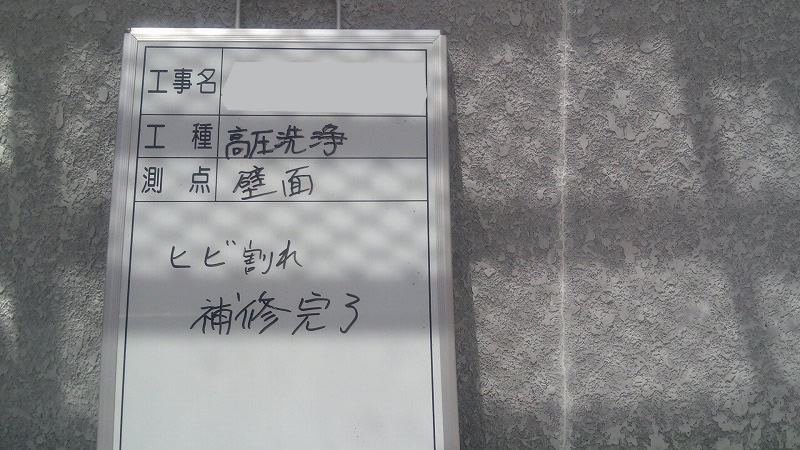 工事名
工種 高圧洗浄
測点 壁面
ヒビ割れ
補修完了